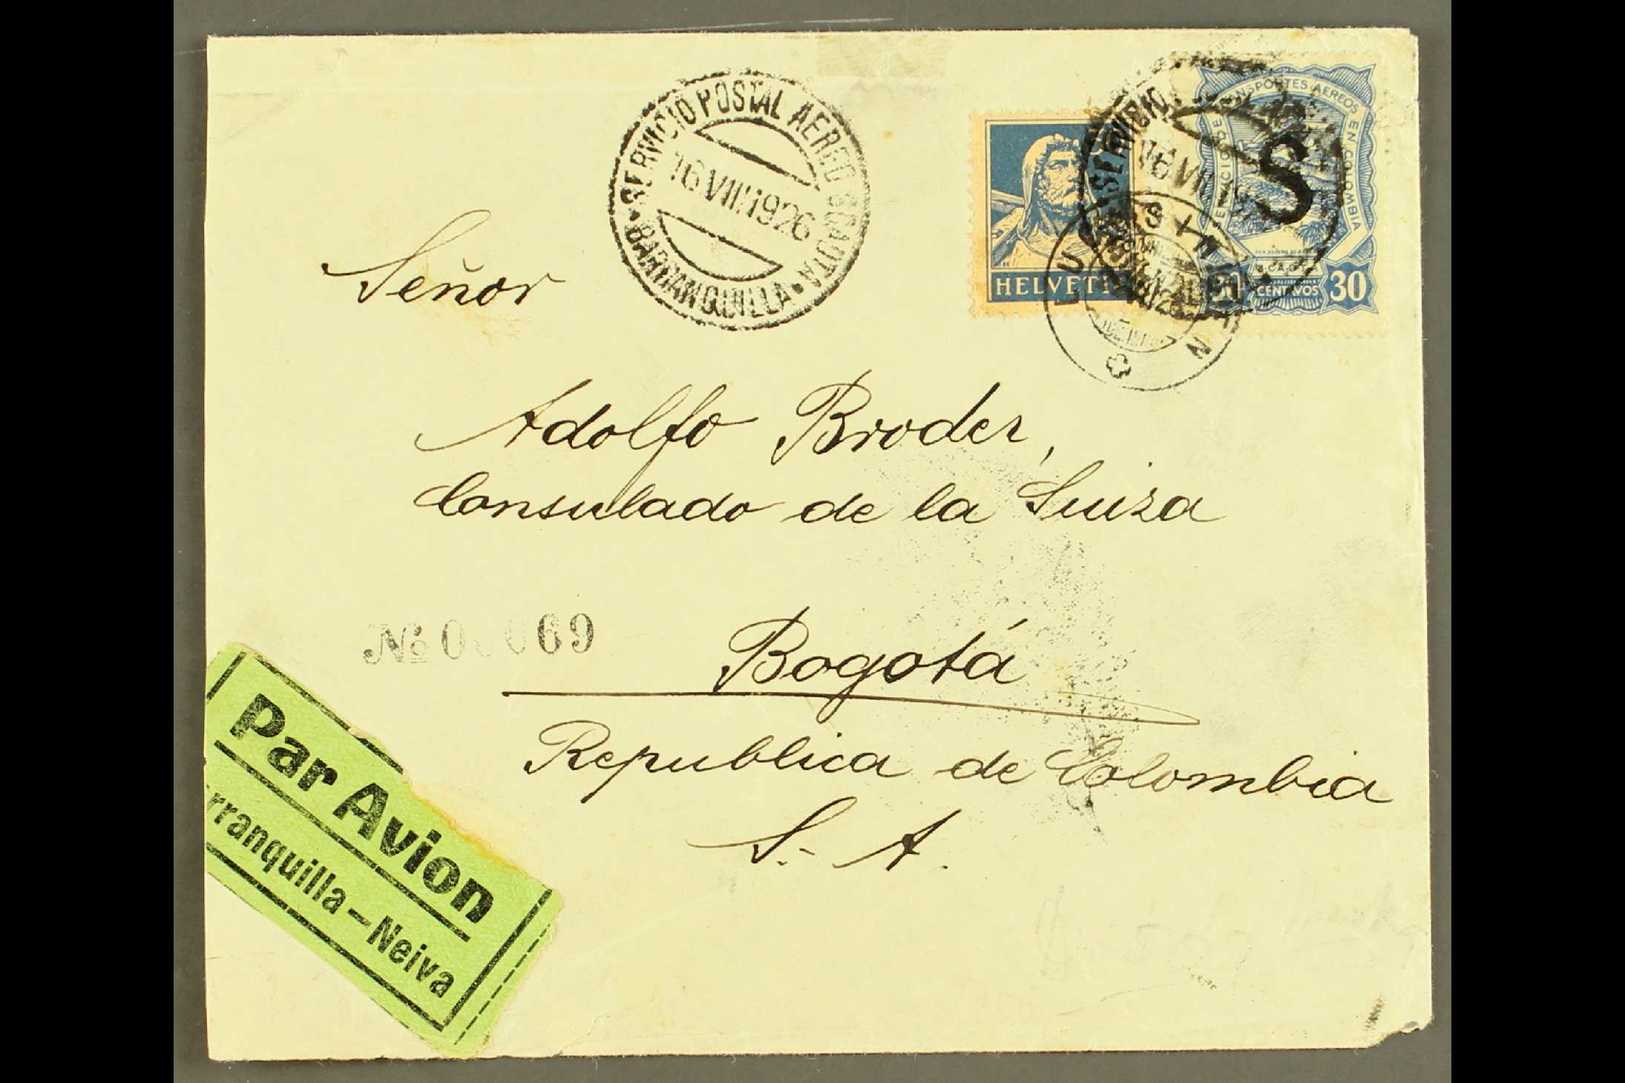 SERVICIO POSTAL AEREO SCADTA
16 VIII 1926
BARRANQUILLA
HELVETI
SERVICIO
16 VIII 19
TRANSPORTES AEREOS EN COLOMBIA
S
CENTAVOS 30
Señor
Adolfo Broder,
Consulado de la Suiza
Nº 0 069
Bogotá
Republica de Colombia
S.- A.
Par Avion
rranquilla-Neiva